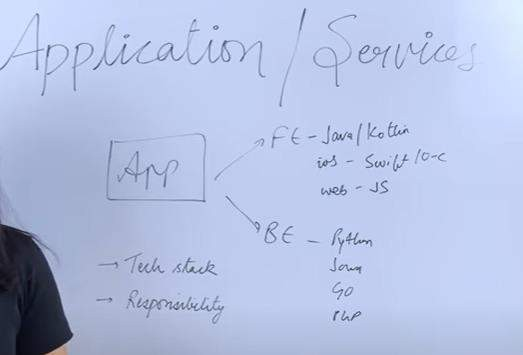 Application / Services
App
FE - Java/Kotlin
ios - Swift / O-C
web - JS
BE - Python
Java
GO
PHP
→ Tech stack
→ Responsibility